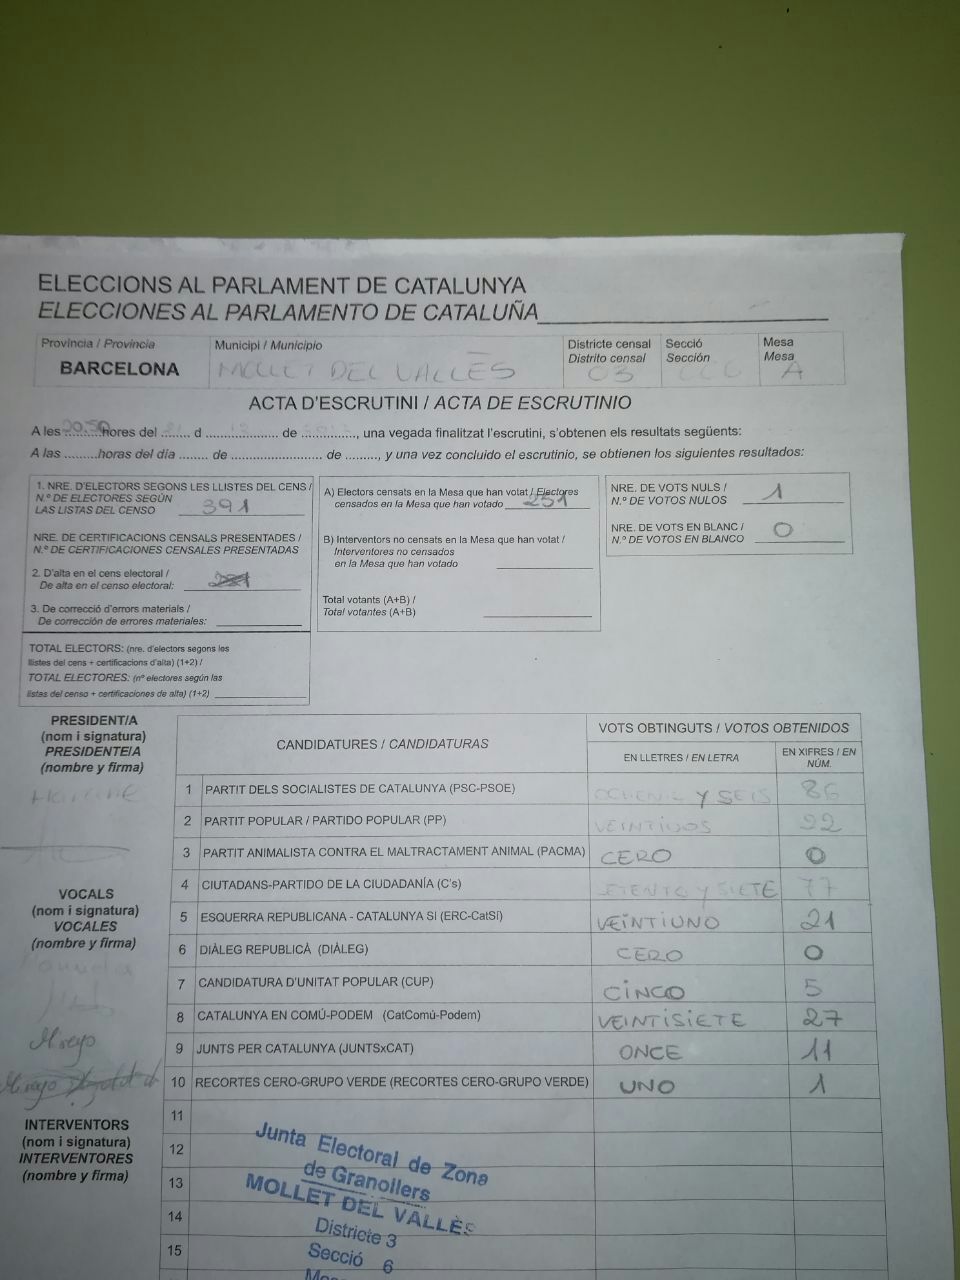 ELECCIONS AL PARLAMENT DE CATALUNYA
ELECCIONES AL PARLAMENTO DE CATALUÑA
Província / Provincia
BARCELONA
Municipi / Municipio
MOLLET DEL VALLÈS
Districte censal
Distrito censal
03
Secció
Sección
Mesa
Mesa
A
ACTA D'ESCRUTINI / ACTA DE ESCRUTINIO
A les ........hores del ........ d .................... de ..............., una vegada finalitzat l'escrutini, s'obtenen els resultats següents:
A las .........horas del día ........ de ......................... de ........., y una vez concluido el escrutinio, se obtienen los siguientes resultados:
1. NRE. D'ELECTORS SEGONS LES LLISTES DEL CENS /
N.º DE ELECTORES SEGÚN
LAS LISTAS DEL CENSO 391
NRE. DE CERTIFICACIONS CENSALS PRESENTADES /
N.º DE CERTIFICACIONES CENSALES PRESENTADAS
2. D'alta en el cens electoral /
De alta en el censo electoral:
3. De correcció d'errors materials /
De corrección de errores materiales:
TOTAL ELECTORS: (nre. d'electors segons les
llistes del cens + certificacions d'alta) (1+2) /
TOTAL ELECTORES: (nº electores según las
listas del censo + certificaciones de alta) (1+2)
A) Electors censats en la Mesa que han votat / Electores
censados en la Mesa que han votado 251
B) Interventors no censats en la Mesa que han votat /
Interventores no censados
en la Mesa que han votado
Total votants (A+B) /
Total votantes (A+B)
NRE. DE VOTS NULS /
N.º DE VOTOS NULOS 1
NRE. DE VOTS EN BLANC /
N.º DE VOTOS EN BLANCO 0
PRESIDENT/A
(nom i signatura)
PRESIDENTE/A
(nombre y firma)
VOCALS
(nom i signatura)
VOCALES
(nombre y firma)
INTERVENTORS
(nom i signatura)
INTERVENTORES
(nombre y firma)
CANDIDATURES / CANDIDATURAS
VOTS OBTINGUTS / VOTOS OBTENIDOS
EN LLETRES / EN LETRA
EN XIFRES / EN
NÚM.
1 PARTIT DELS SOCIALISTES DE CATALUNYA (PSC-PSOE) Y SEIS 86
2 PARTIT POPULAR / PARTIDO POPULAR (PP) VEINTIDOS 22
3 PARTIT ANIMALISTA CONTRA EL MALTRACTAMENT ANIMAL (PACMA) CERO 0
4 CIUTADANS-PARTIDO DE LA CIUDADANÍA (C's) Y SIETE 77
5 ESQUERRA REPUBLICANA - CATALUNYA SÍ (ERC-CatSí) VEINTIUNO 21
6 DIÀLEG REPUBLICÀ (DIÀLEG) CERO 0
7 CANDIDATURA D'UNITAT POPULAR (CUP) CINCO 5
8 CATALUNYA EN COMÚ-PODEM (CatComú-Podem) VEINTISIETE 27
9 JUNTS PER CATALUNYA (JUNTSxCAT) ONCE 11
10 RECORTES CERO-GRUPO VERDE (RECORTES CERO-GRUPO VERDE) UNO 1
11
12
13
14
15
Junta Electoral de Zona
de Granollers
MOLLET DEL VALLÈS
Districte 3
Secció 6